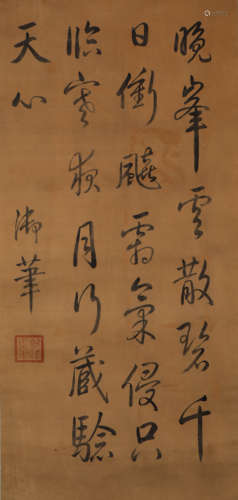 晚峯雲散碧千
日衝飈霜氣侵只
臨寒夜月行藏驗
天心
御筆